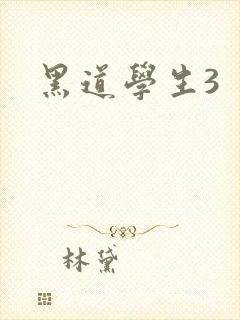 黑道學生3
林黛